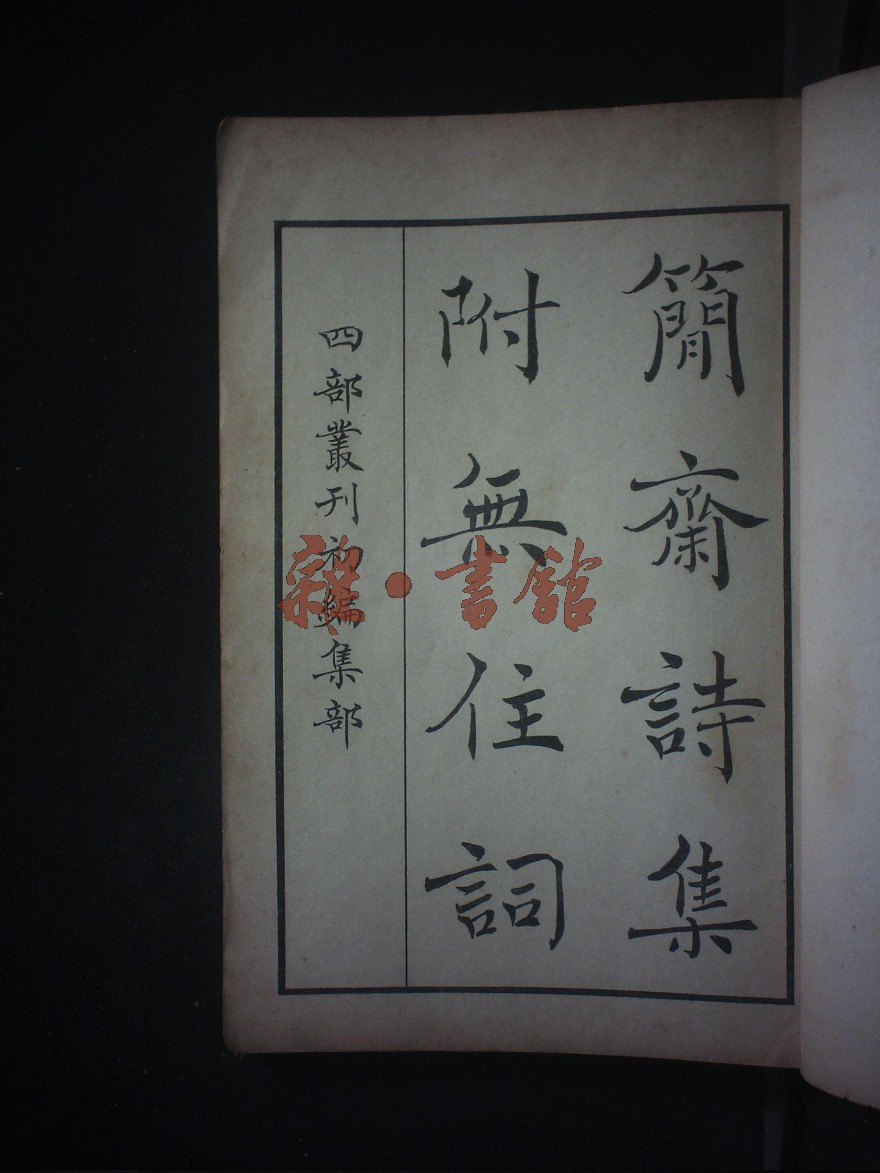 簡齋詩集
附無住詞
四部叢刊初編集部
雜·書館